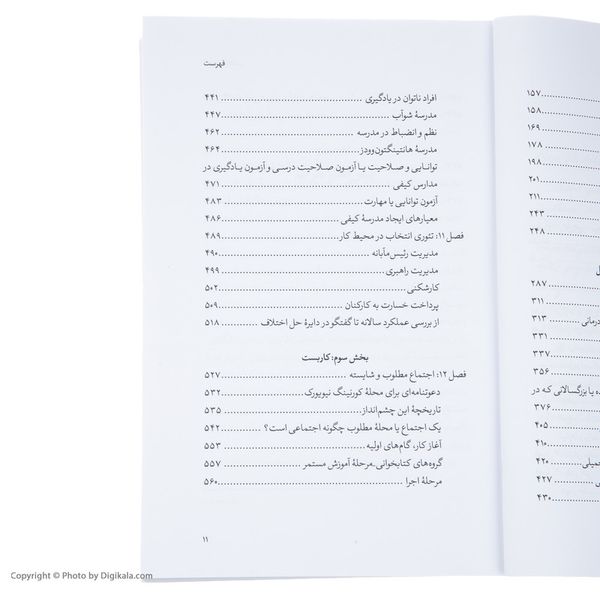 فهرست
افراد ناتوان در یادگیری ۴۴۱
مدرسهٔ شوآب ۴۴۷
نظم و انضباط در مدرسه ۴۶۲
مدرسهٔ هانتینگتون‌وودز ۴۶۴
توانایی و صلاحیت یا آزمون صلاحیت درسی و آزمون یادگیری در
مدارس کیفی ۴۷۱
آزمون توانایی یا مهارت ۴۸۳
معیارهای ایجاد مدرسهٔ کیفی ۴۸۶
فصل ۱۱: تئوری انتخاب در محیط کار ۴۸۹
مدیریت رئیس‌مآبانه ۴۹۰
مدیریت راهبری ۴۹۹
کارشکنی ۵۰۲
پرداخت خسارت به کارکنان ۵۰۹
از بررسی عملکرد سالانه تا گفتگو در دایرهٔ حل اختلاف ۵۱۸
بخش سوم: کاربست
فصل ۱۲: اجتماع مطلوب و شایسته ۵۲۷
دعوتنامه‌ای برای محلهٔ کورنینگ نیویورک ۵۳۲
تاریخچهٔ این چشم‌انداز ۵۳۵
یک اجتماع یا محلهٔ مطلوب چگونه اجتماعی است؟ ۵۴۲
آغاز کار، گام‌های اولیه ۵۵۳
گروه‌های کتابخوانی-مرحلهٔ آموزش مستمر ۵۵۷
مرحلهٔ اجرا ۵۶۰
۱۱
۱۵۷
۱۵۸
۱۶۹
۱۷۸
۱۹۸
۲۰۱
۲۱۱
۲۴۳
۲۴۸
۲۸۷
۳۱۱
درمانی ۳۱۳
۳۳۱
۳۳۷
۳۵۶
ده یا بزرگسالانی که در
۳۷۶
۴۰۵
۴۱۰
۴۲۰
۴۲۷
۴۳۰
Copyright © Photo by Digikala.com